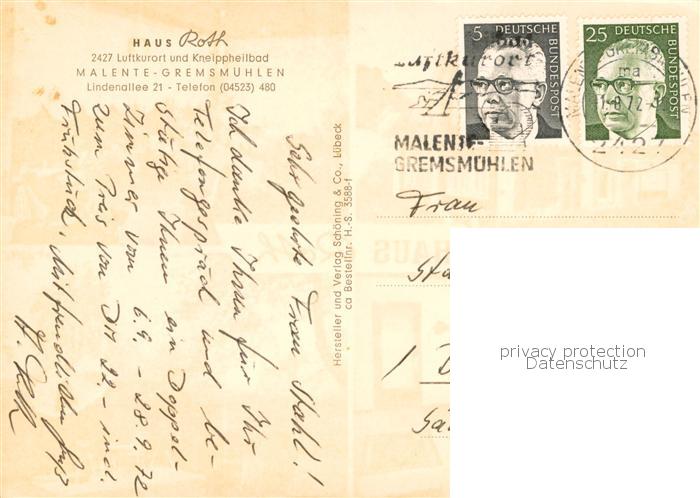 HAUS Roth
2427 Luftkurort und Kneippheilbad
MALENTE-GREMSMÜHLEN
Lindenallee 21 - Telefon (04523) 480
Sehr geehrte Frau Stahl!
Ich danke Ihnen für Ihr
Telefongespräch und be-
stätige Ihnen ein Doppel-
Zimmer vom 6.9. - 28.9.72
zum Preis von DM 22.- incl.
Frühstück. Mit freundlichem Gruß
H. Roth
Hersteller und Verlag Schöning & Co., Lübeck
ca Bestellnr. H.-S. 3588-f
5 DEUTSCHE BUNDESPOST
25 DEUTSCHE BUNDESPOST
Luftkurort
MALENTE-
GREMSMÜHLEN
MALENTE-GREMSMÜHLEN
ma
2427
Frau
privacy protection
Datenschutz